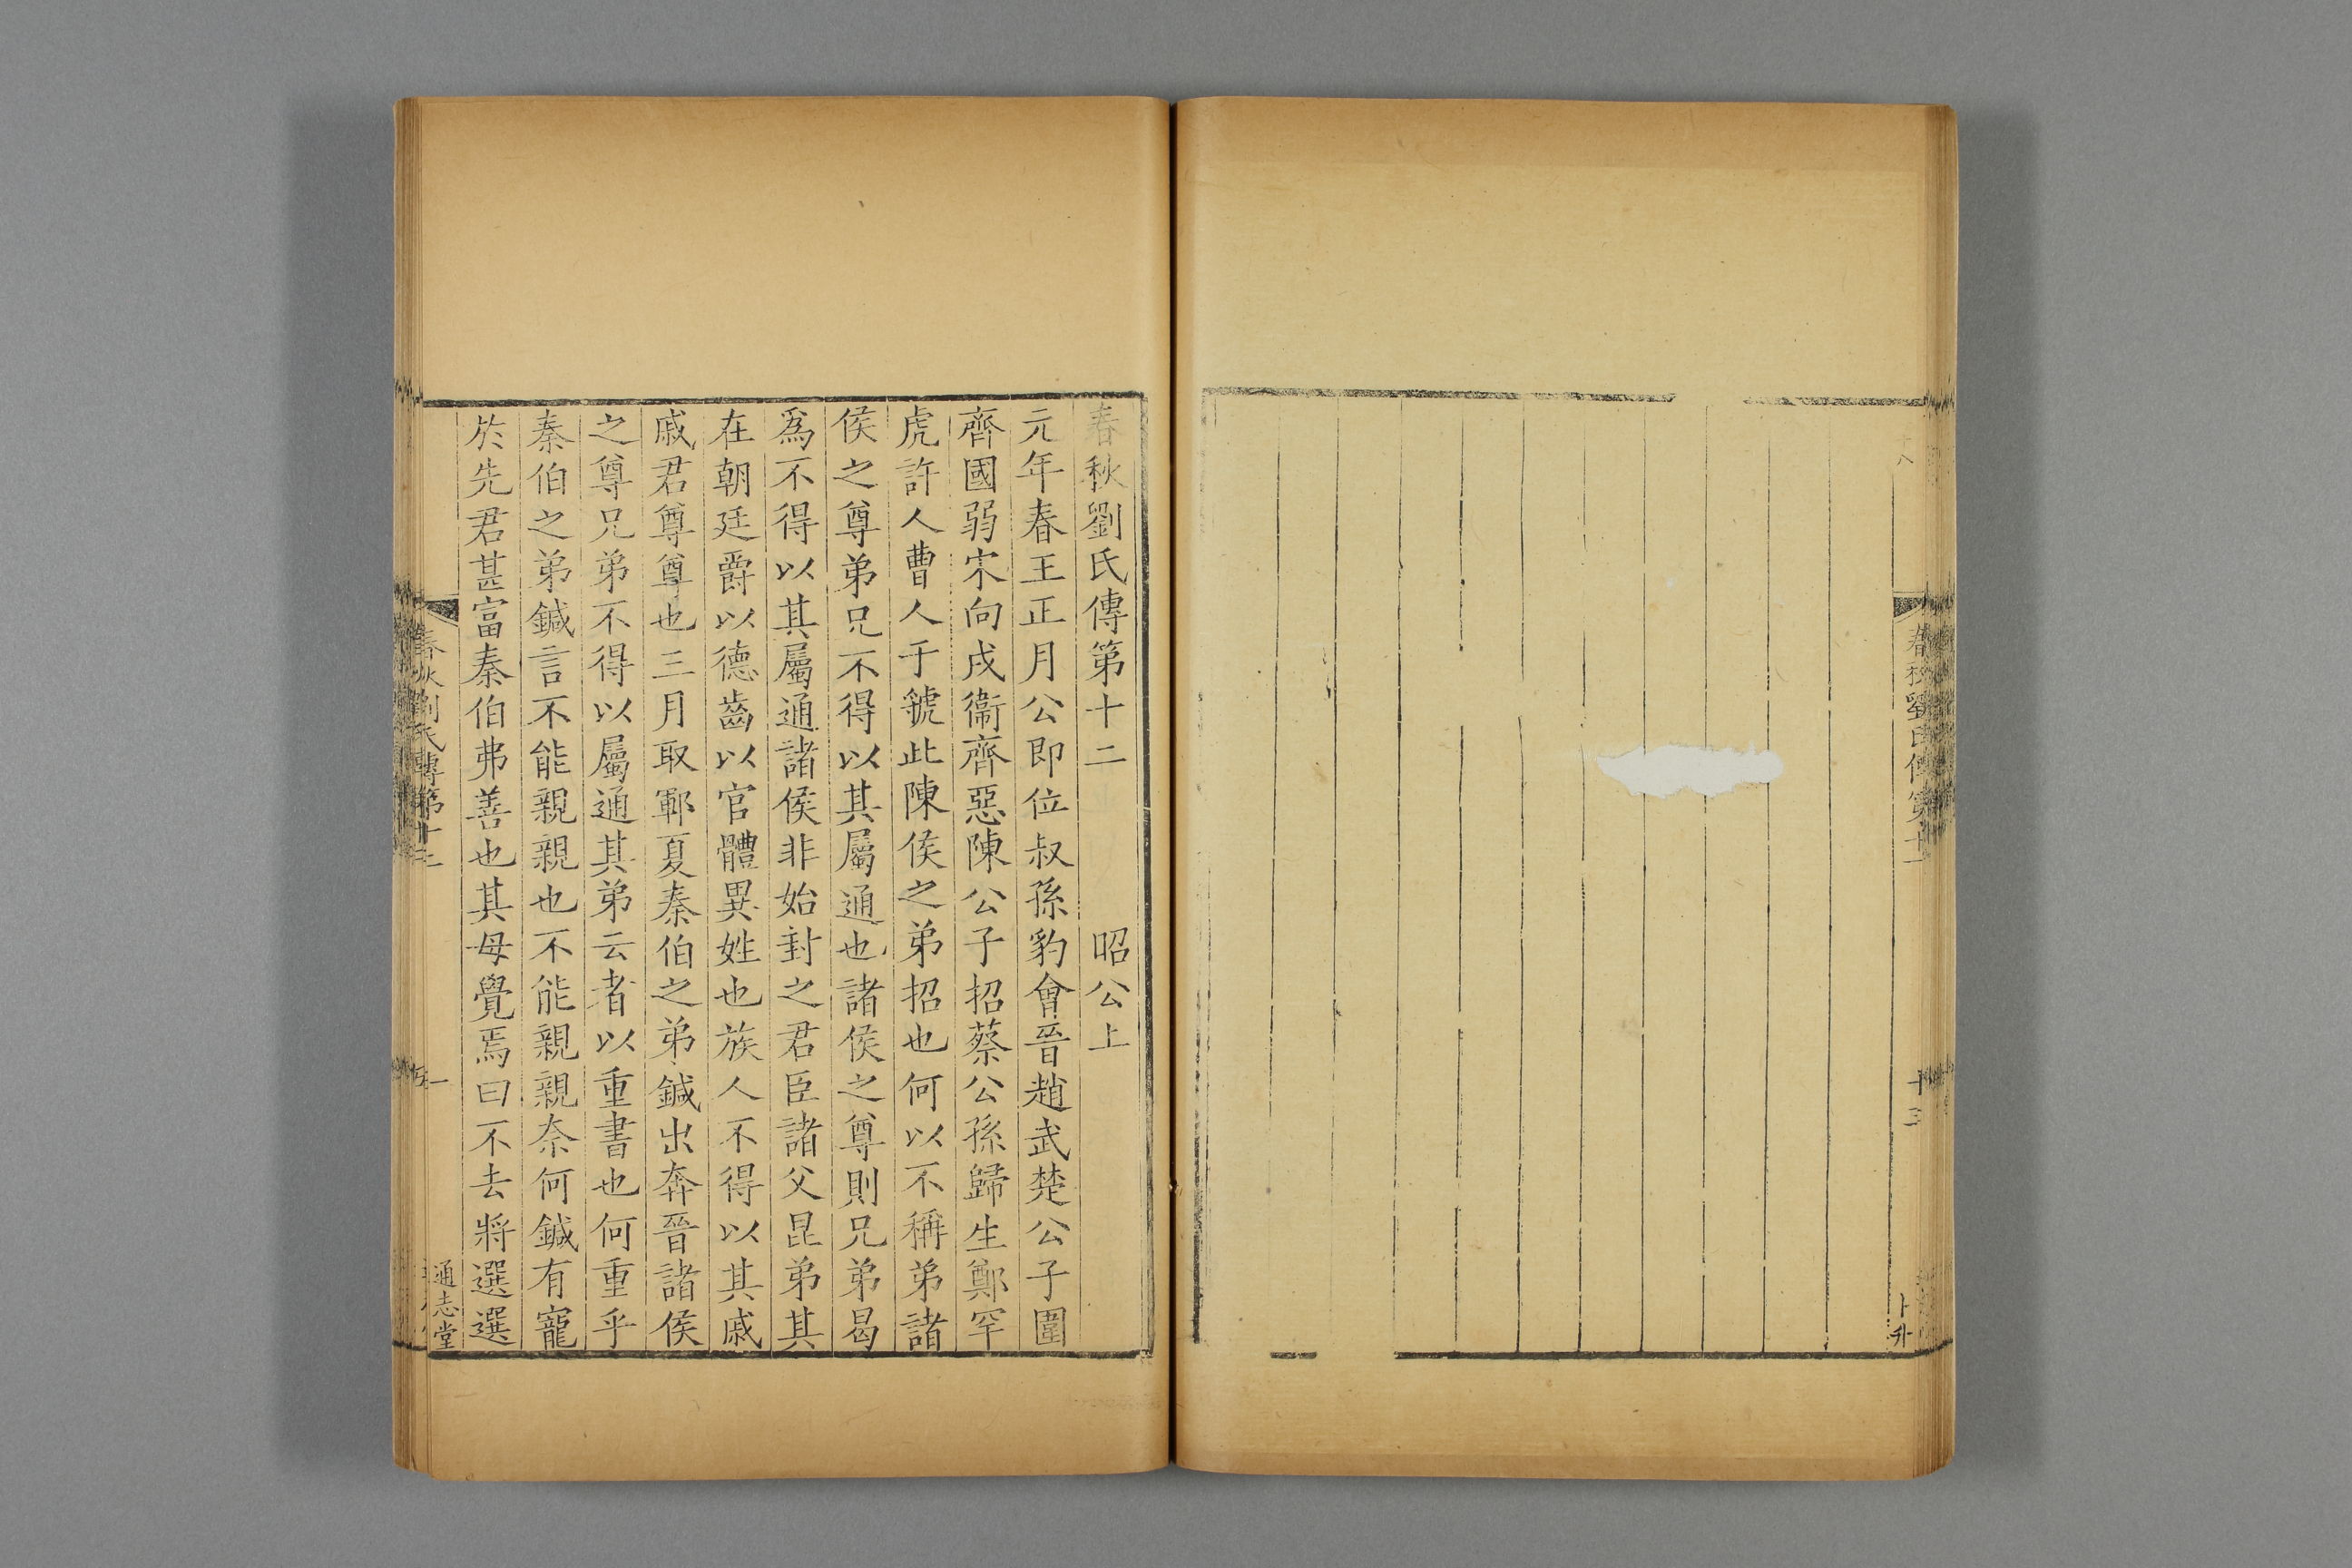 春秋劉氏傳第十
十三
春秋劉氏傳第十二 昭公上
元年春王正月公即位叔孫豹會晉趙武楚公子圍
齊國弱宋向戌衞齊惡陳公子招蔡公孫歸生鄭罕
虎許人曹人于虢此陳侯之弟招也何以不稱弟諸
侯之尊弟兄不得以其屬通也諸侯之尊則兄弟曷
爲不得以其屬通諸侯非始封之君臣諸父昆弟其
在朝廷爵以德齒以官體異姓也族人不得以其戚
戚君尊尊也三月取鄆夏秦伯之弟鍼出奔晉諸侯
之尊兄弟不得以屬通其弟云者以重書也何重乎
秦伯之弟鍼言不能親親也不能親親奈何鍼有寵
於先君甚富秦伯弗善也其母覺焉曰不去將選選
春秋劉氏傳第十二
一
通志堂